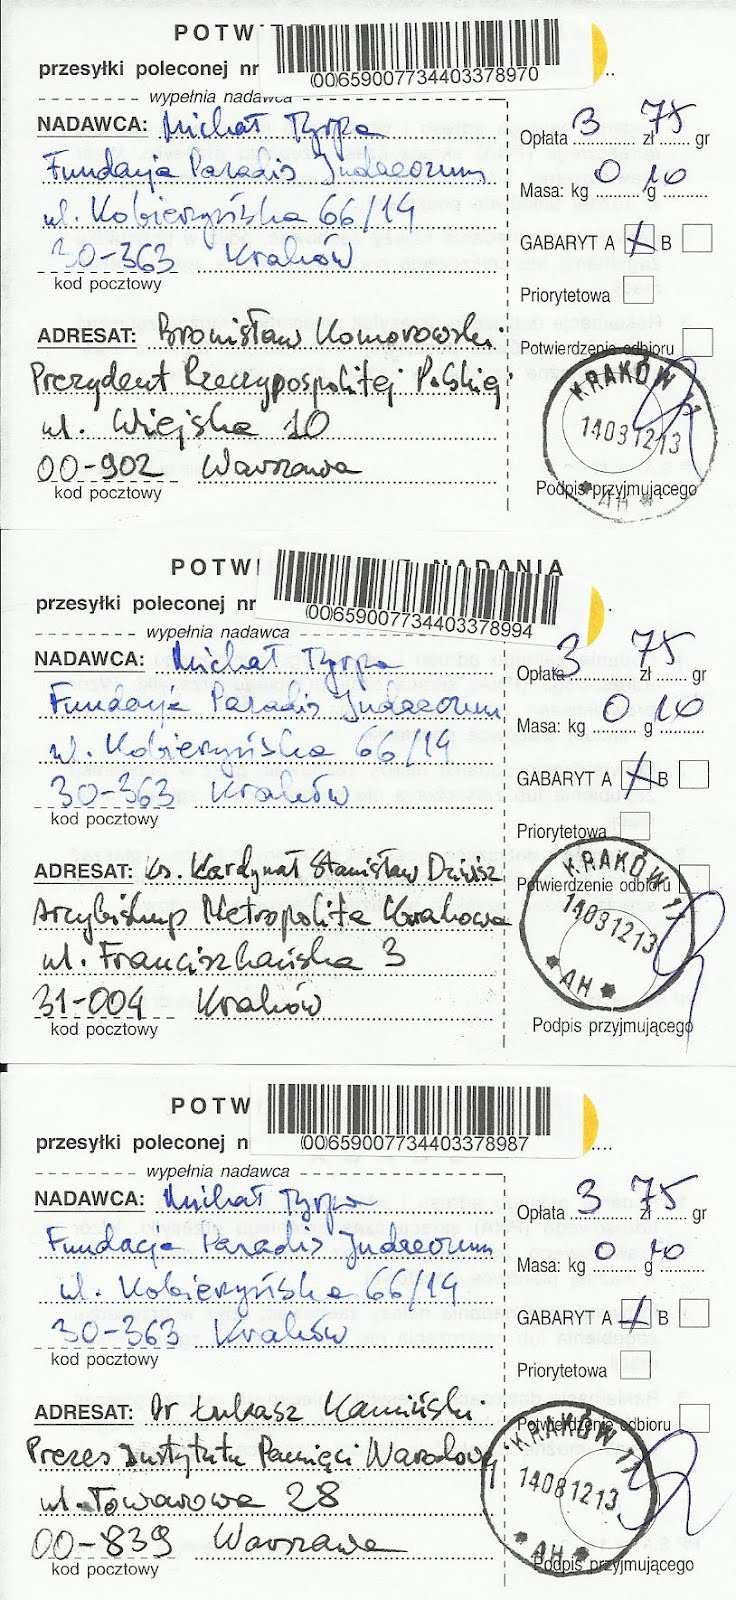 POTW
(00)659007734403378970
przesyłki poleconej nr
wypełnia nadawca
NADAWCA: Michał Tyrpa
Fundacja Paradis Judaeorum
ul. Kobierzyńska 66/14
30-363 Kraków
kod pocztowy
Opłata 3 zł 75 gr
Masa: kg 0 g 10
GABARYT A X B
Priorytetowa
ADRESAT: Bronisław Komorowski
Prezydent Rzeczypospolitej Polskiej
ul. Wiejska 10
00-902 Warszawa
kod pocztowy
Potwierdzenie odbioru
KRAKÓW 11
14081213
* AH *
Podpis przyjmującego
POTW NADANIA
(00)659007734403378994
przesyłki poleconej nr
wypełnia nadawca
NADAWCA: Michał Tyrpa
Fundacja Paradis Judaeorum
ul. Kobierzyńska 66/14
30-363 Kraków
kod pocztowy
Opłata 3 zł 75 gr
Masa: kg 0 g 10
GABARYT A X B
Priorytetowa
ADRESAT: Ks. Kardynał Stanisław Dziwisz
Arcybiskup Metropolita Krakowa
ul. Franciszkańska 3
31-004 Kraków
kod pocztowy
Potwierdzenie odbioru
KRAKÓW 11
14081213
* AH *
Podpis przyjmującego
POTW
(00)659007734403378987
przesyłki poleconej n
wypełnia nadawca
NADAWCA: Michał Tyrpa
Fundacja Paradis Judaeorum
ul. Kobierzyńska 66/14
30-363 Kraków
kod pocztowy
Opłata 3 zł 75 gr
Masa: kg 0 g 10
GABARYT A X B
Priorytetowa
ADRESAT: Dr Łukasz Kamiński
Prezes Instytutu Pamięci Narodowej
ul. Towarowa 28
00-839 Warszawa
kod pocztowy
Potwierdzenie odbioru
KRAKÓW 11
14081213
* AH *
Podpis przyjmującego